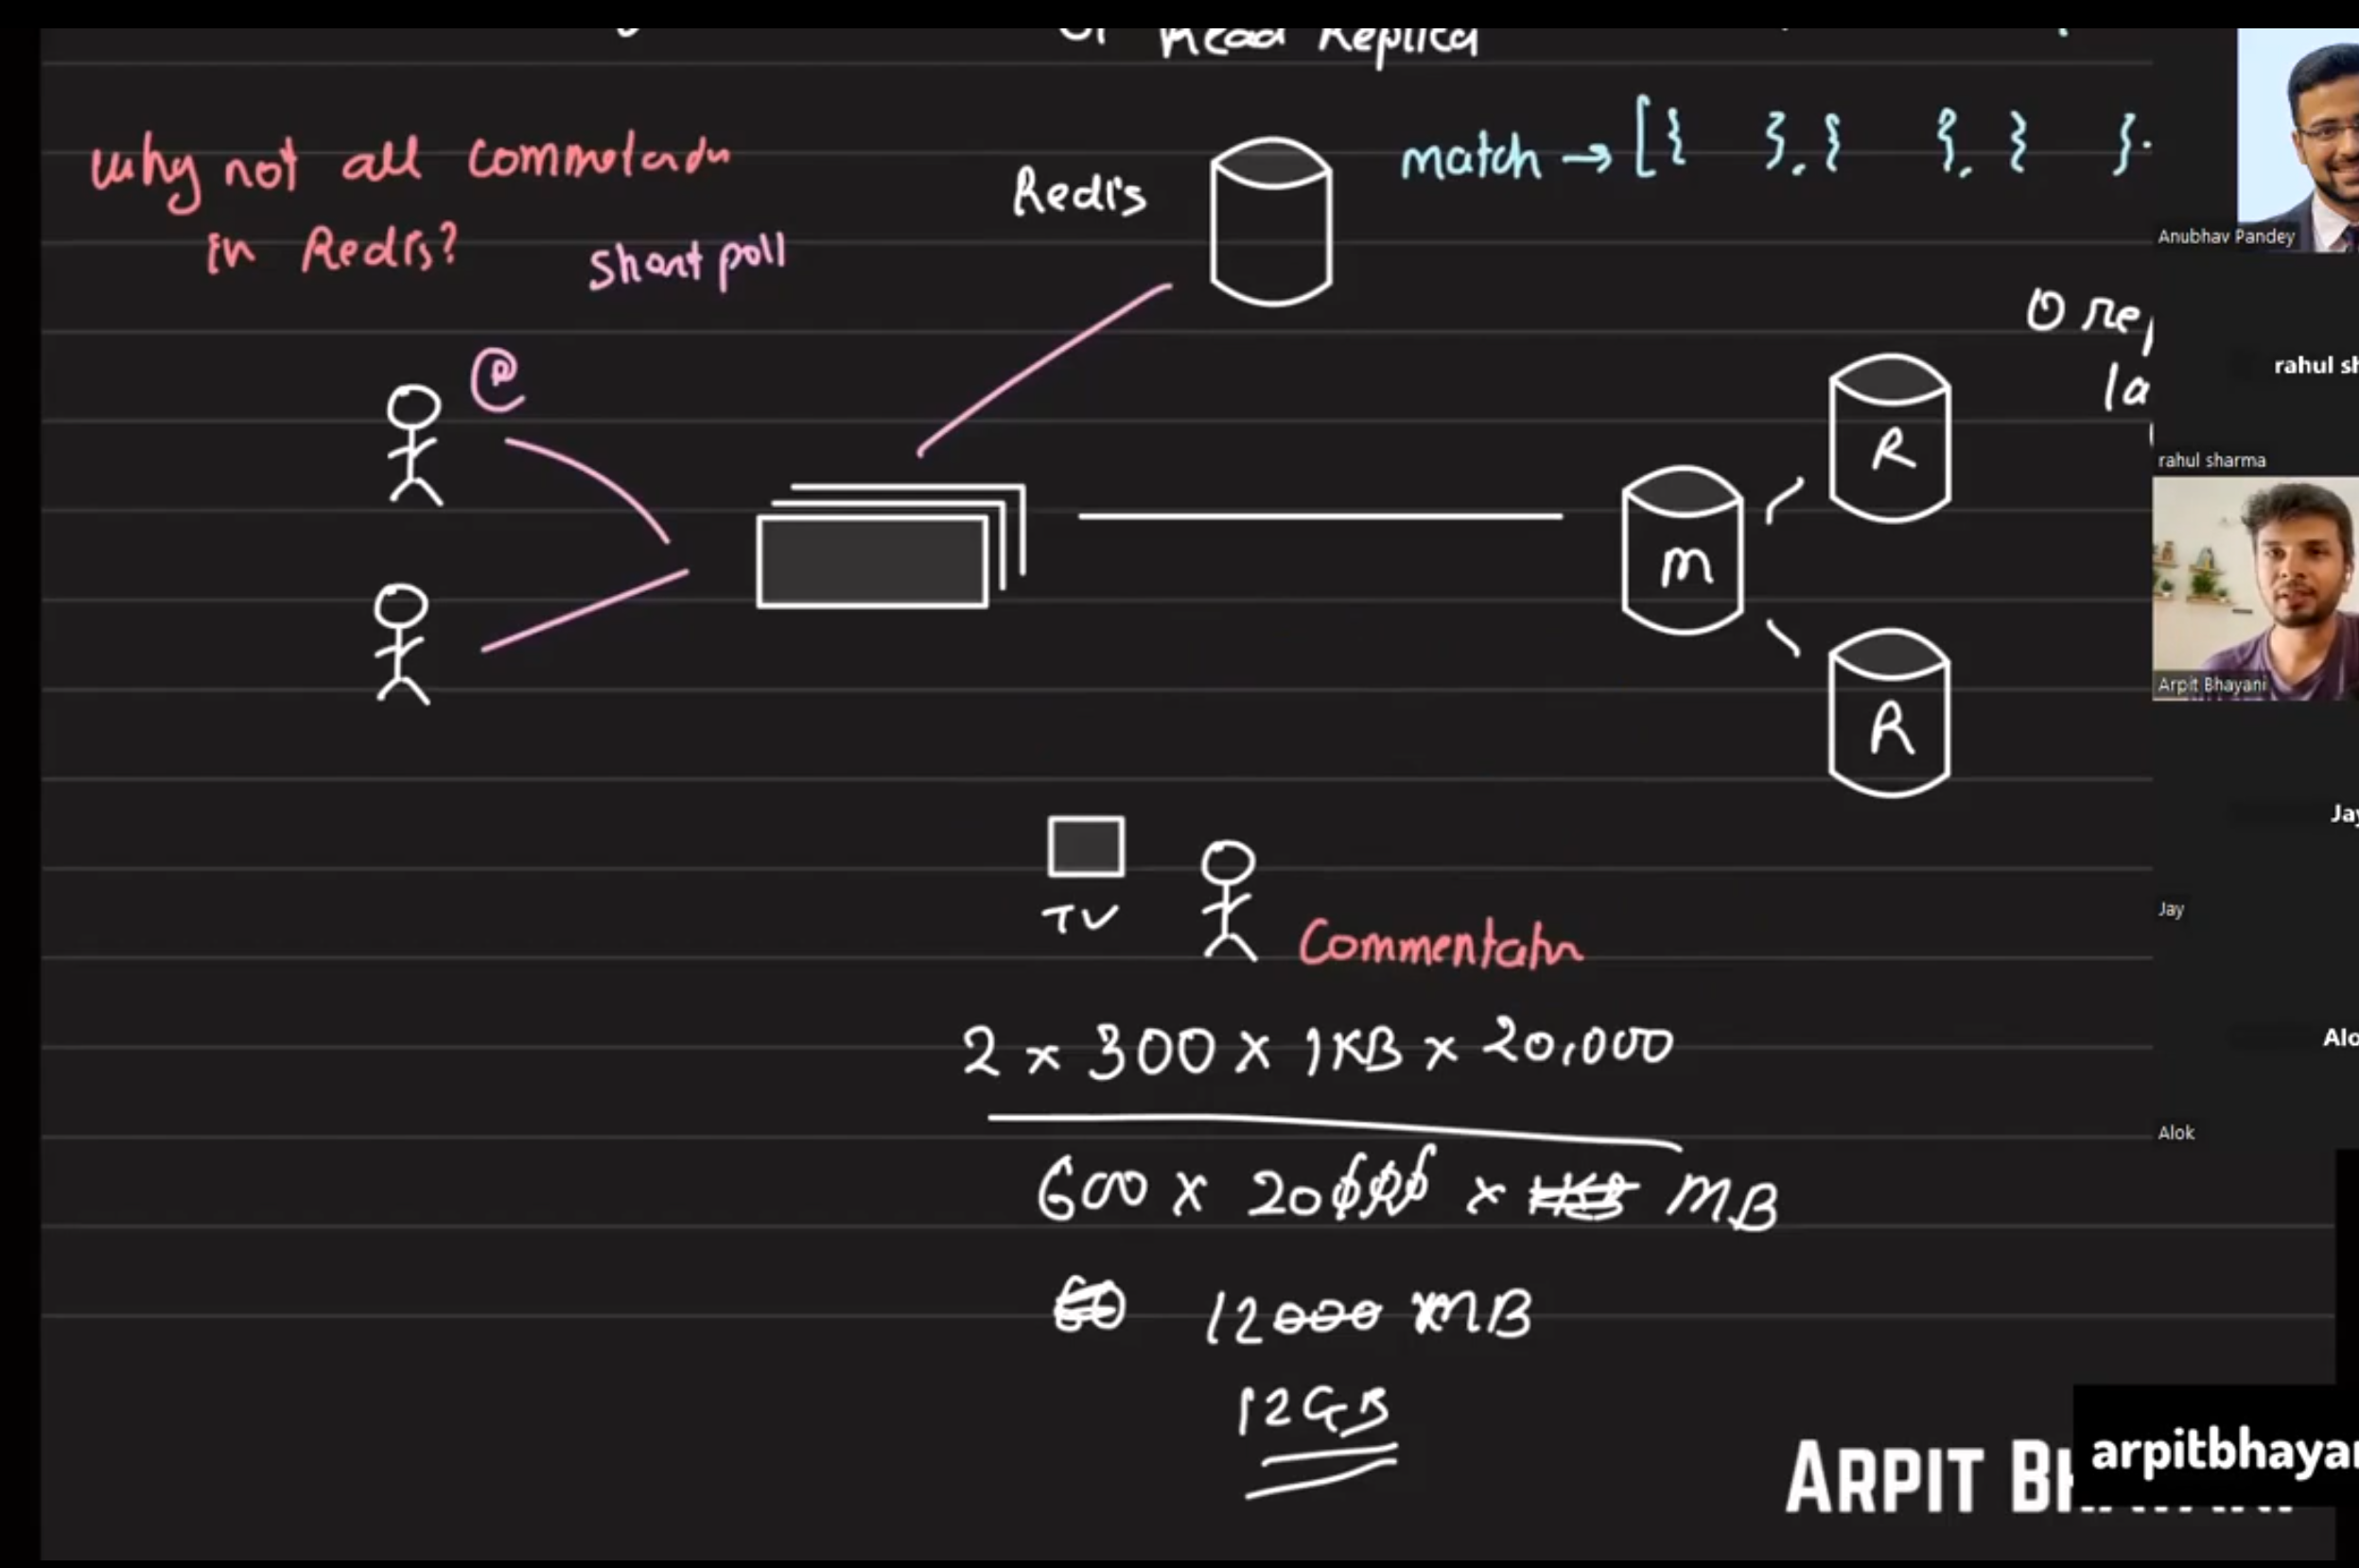 or Read Replica
Why not all commetadn
in Redis?
short poll
Redis
match → [{ }, { }, { }.
@
0 rep
la
R
M
R
TV
Commentatn
2 x 300 x 1KB x 20,000
600 x 20000 x 1KB MB
60 12000 MB
12GB
Anubhav Pandey
rahul sh
rahul sharma
Arpit Bhayani
Jay
Jay
Alo
Alok
ARPIT BHAYANI
arpitbhayan